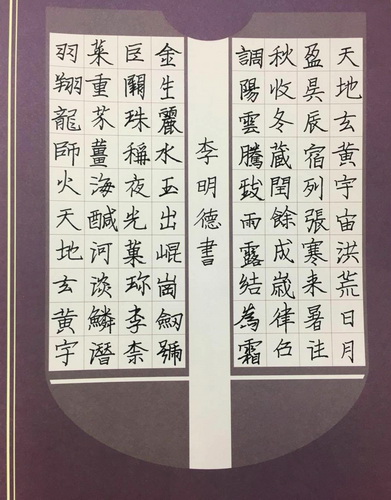 天地玄黃宇宙洪荒日月
盈昃辰宿列張寒来暑往
秋收冬蔵閏餘成歲律召
調陽雲騰致雨露結為霜
李明德書
金生麗水玉出崐崗劒號
巨闕珠稱夜光菓珎李柰
菜重芥薑海鹹河淡鱗潛
羽翔龍師火天地玄黃宇